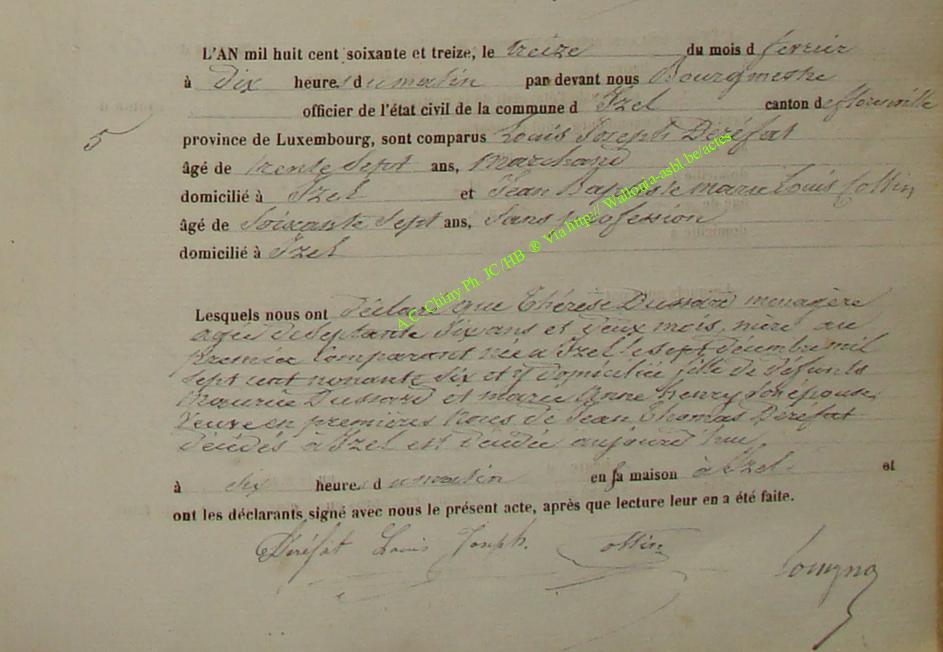 L'AN mil huit cent soixante et treize, le treize du mois d fevrier
à dix heures du matin par devant nous Bourgmestre
officier de l'état civil de la commune d Izel canton de florenville
5
province de Luxembourg, sont comparus Louis Joseph Déréfat
âgé de trente sept ans, Marchand
domicilié à Izel et Jean Baptiste Marie Louis Collin
âgé de Soixante Sept ans, Sans profession
domicilié à Izel
A.C. Chiny Ph. JC/HB ® Via http://Wallonia-asbl.be/actes
Lesquels nous ont déclaré que Thérèse Dussard menagère
agée de Septante Six ans et deux mois, mère au
premier Comparant née a Izel le sept décembre mil
Sept cent nonante Six et y domiciliée fille de défunts
Maurice Dussard et marie Anne henry
Veuve en premières noces de Jean Thomas Déréfat
décédé à Izel est aujourd'hui
à dix heures du matin en sa maison à Izel. et
ont les déclarants signé avec nous le présent acte, après que lecture leur en a été faite.
Déréfat Louis Joseph. Collin